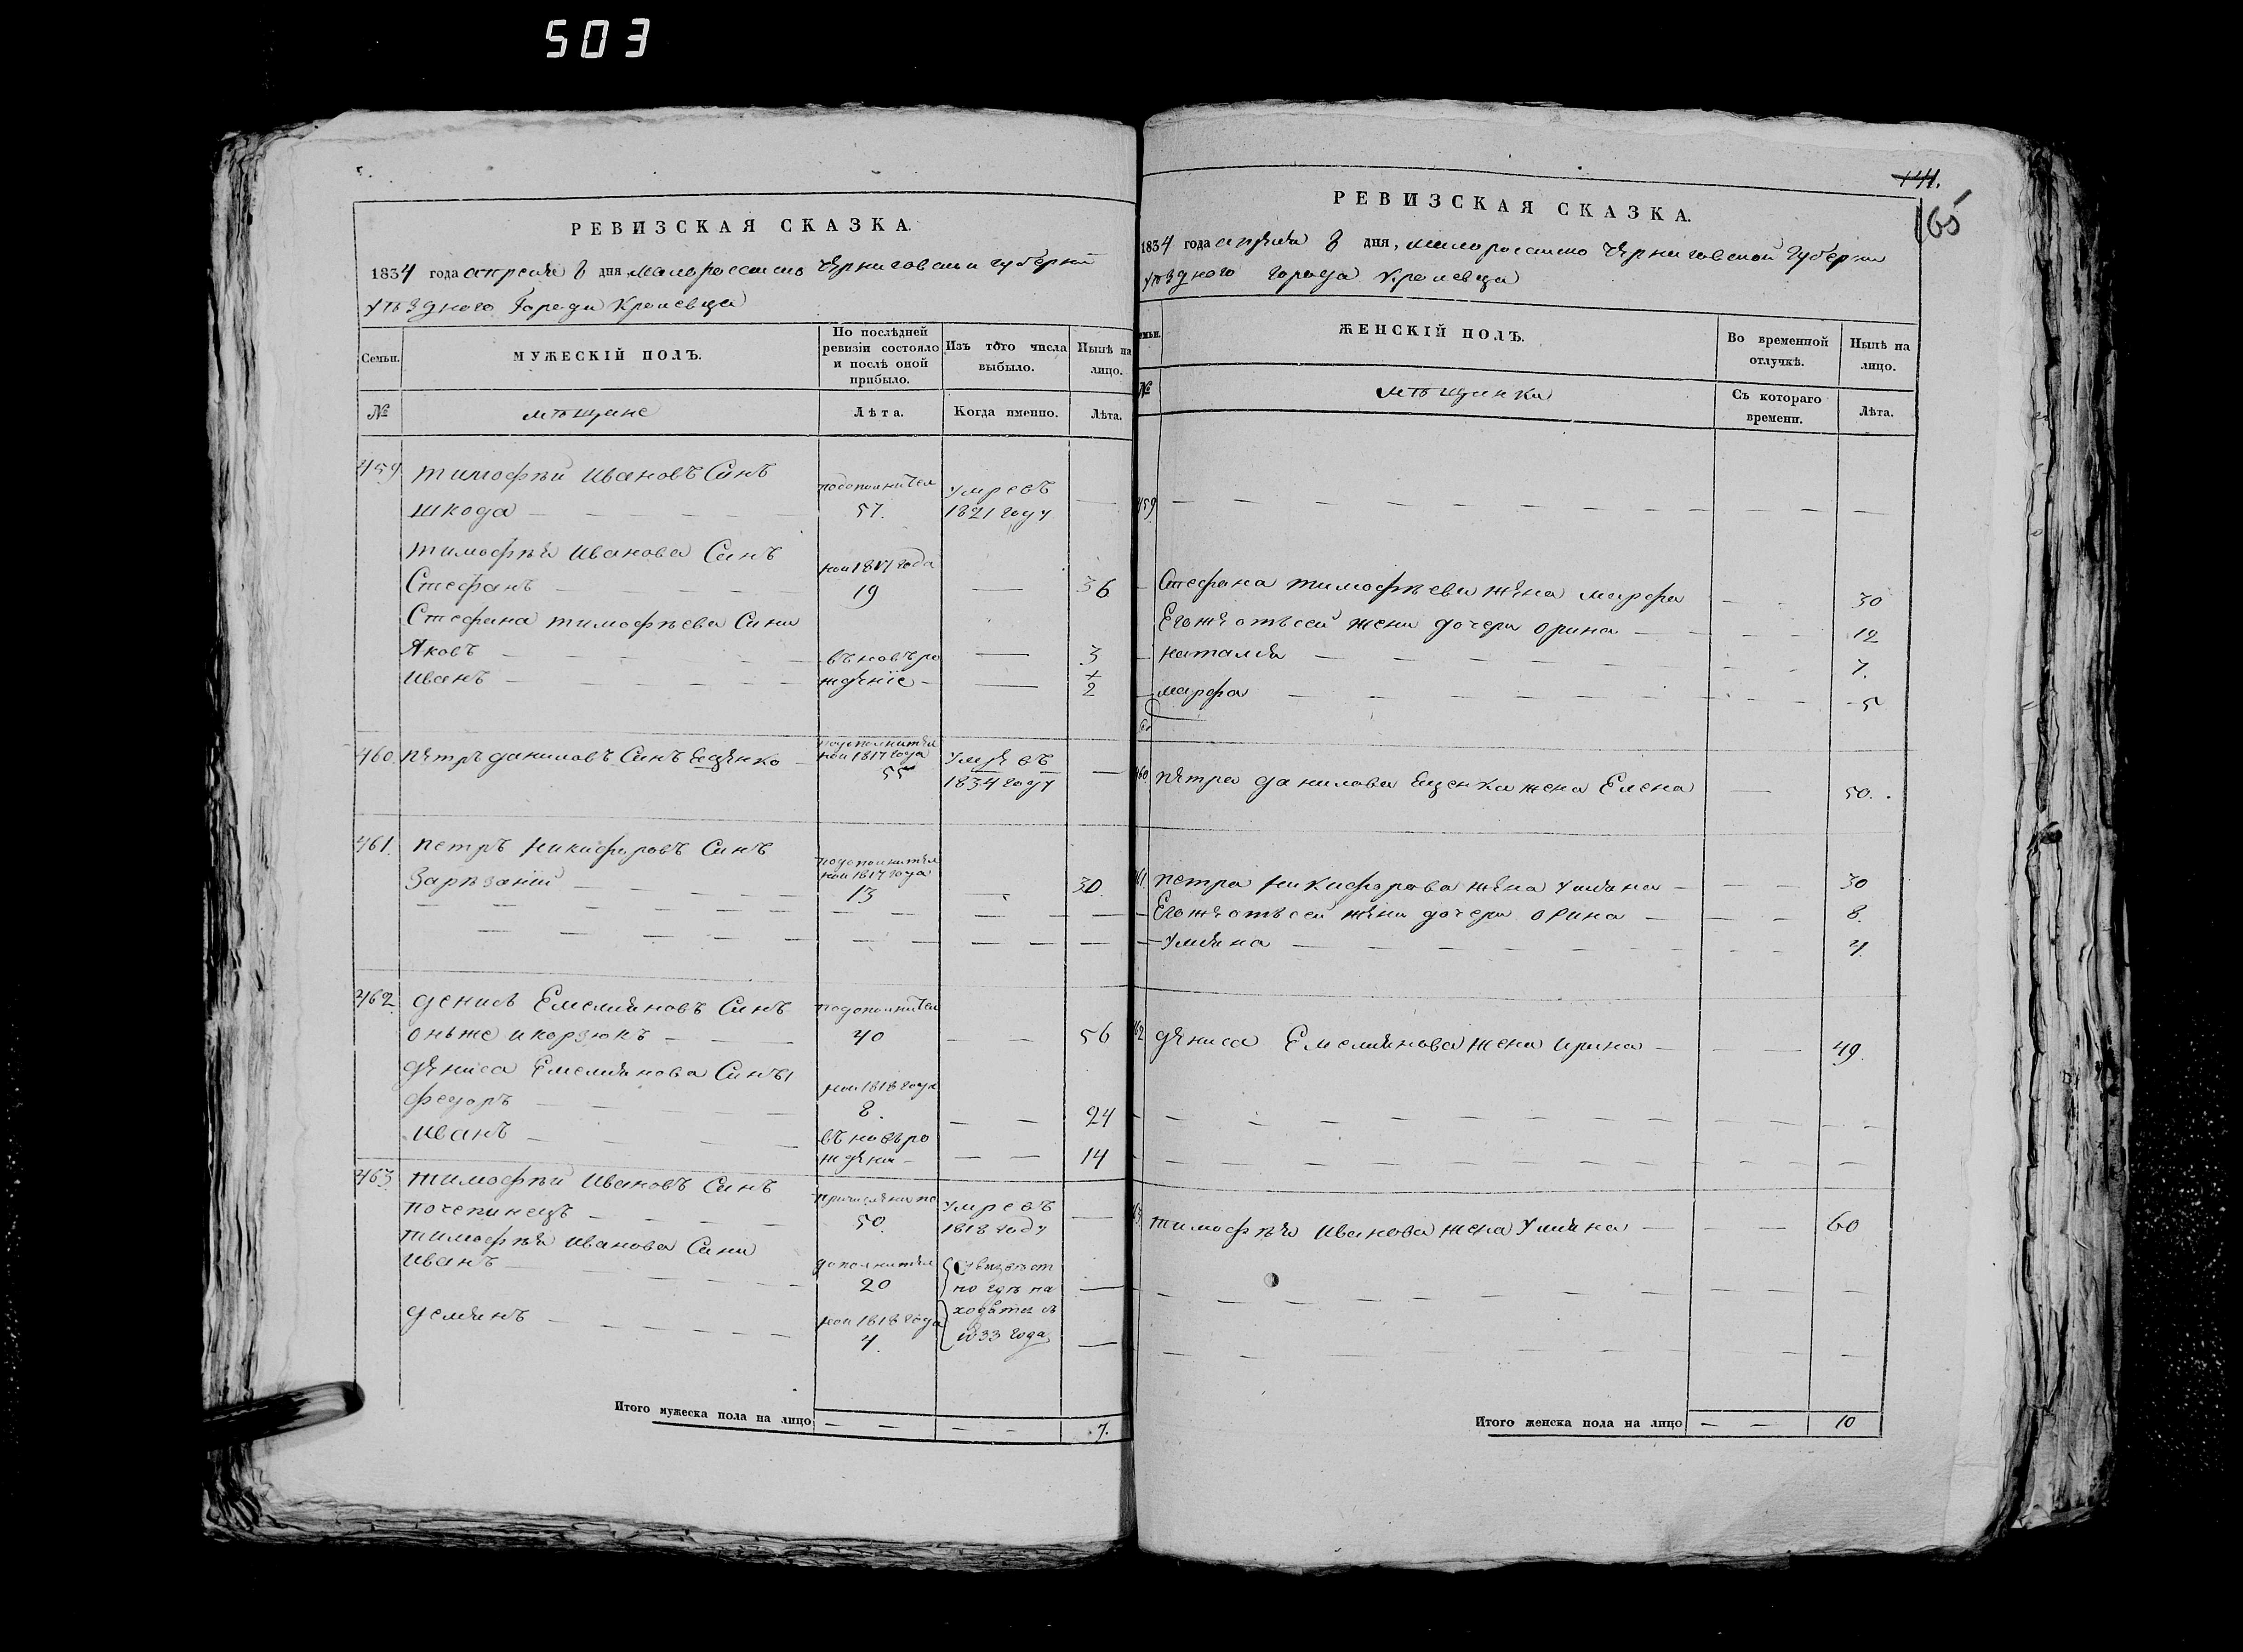 503
РЕВИЗСКАЯ СКАЗКА.
1834 года апреля 8 дня, малороссийско Черниговской губернии
уѣздного Города Кролевца
Семьи.
МУЖЕСКІЙ ПОЛЪ.
По послѣдней ревизіи состояло и послѣ оной прибыло.
Изъ того числа выбыло.
Нынѣ на лицо.
№
мѣщане
Лѣта.
Когда именно.
Лѣта.
459 Тимофѣй Ивановъ Синъ
Шкода — подополнител 57. умревъ 1821 году —
Тимофѣя Иванова Синъ
Стефанъ — ной 1817 года 19 — 36
Стефана Тимофѣева Сини
Яковъ — въновъро — 3
Иванъ — жденіе — 2
460 Пѣтръ Даниловъ Синъ Ященко — подополнител ной 1817 года 55 умре въ 1834 году —
461. Петръ Никифоровъ Синъ
Зарѣзаній — подополнител ной 1817 года 13 — 30.
462 Денисъ Емелияновъ Синъ
онъже и корзюкъ — подополнител 40 — 56
Дениса Емелиянова Сины
Федоръ — ной 1818 года 8. — 24
Иванъ — въновъро ждени — 14
463 Тимофѣй Ивановъ Синъ
почепинецъ — причислени по 50. умревъ 1818 году —
Тимофѣя Иванова Сини
Иванъ — дополнител 20
по гдѣ на —
Демянъ — ной 1818 года 4. ходятся съ 1833 года —
Итого мужеска пола на лицо — — 7.
141.
165
РЕВИЗСКАЯ СКАЗКА.
1834 года апреля 8 дня, малороссийско Черниговской Губернии
уѣздного города Кролевца
емьи.
ЖЕНСКІЙ ПОЛЪ.
Во временной отлучкѣ.
Нынѣ на лицо.
№
мѣщанки
Съ котораго времени.
Лѣта.
459 —
Стефана Тимофѣева жена марфа — 30
Егожъ отъсей жени дочери орина — 12
наталия — 7.
марфа — 5
460 Пѣтра Данилова Ященка жена Елена — 50.
61. Петра Никифорова жена улияна — 30
Егожъ отъсей жени дочери орина — 8.
улияна — 4.
62 Дениса Емелиянова жена ирина — 49.
63. Тимофѣя Иванова жена улияна — 60
Итого женска пола на лицо — — 10